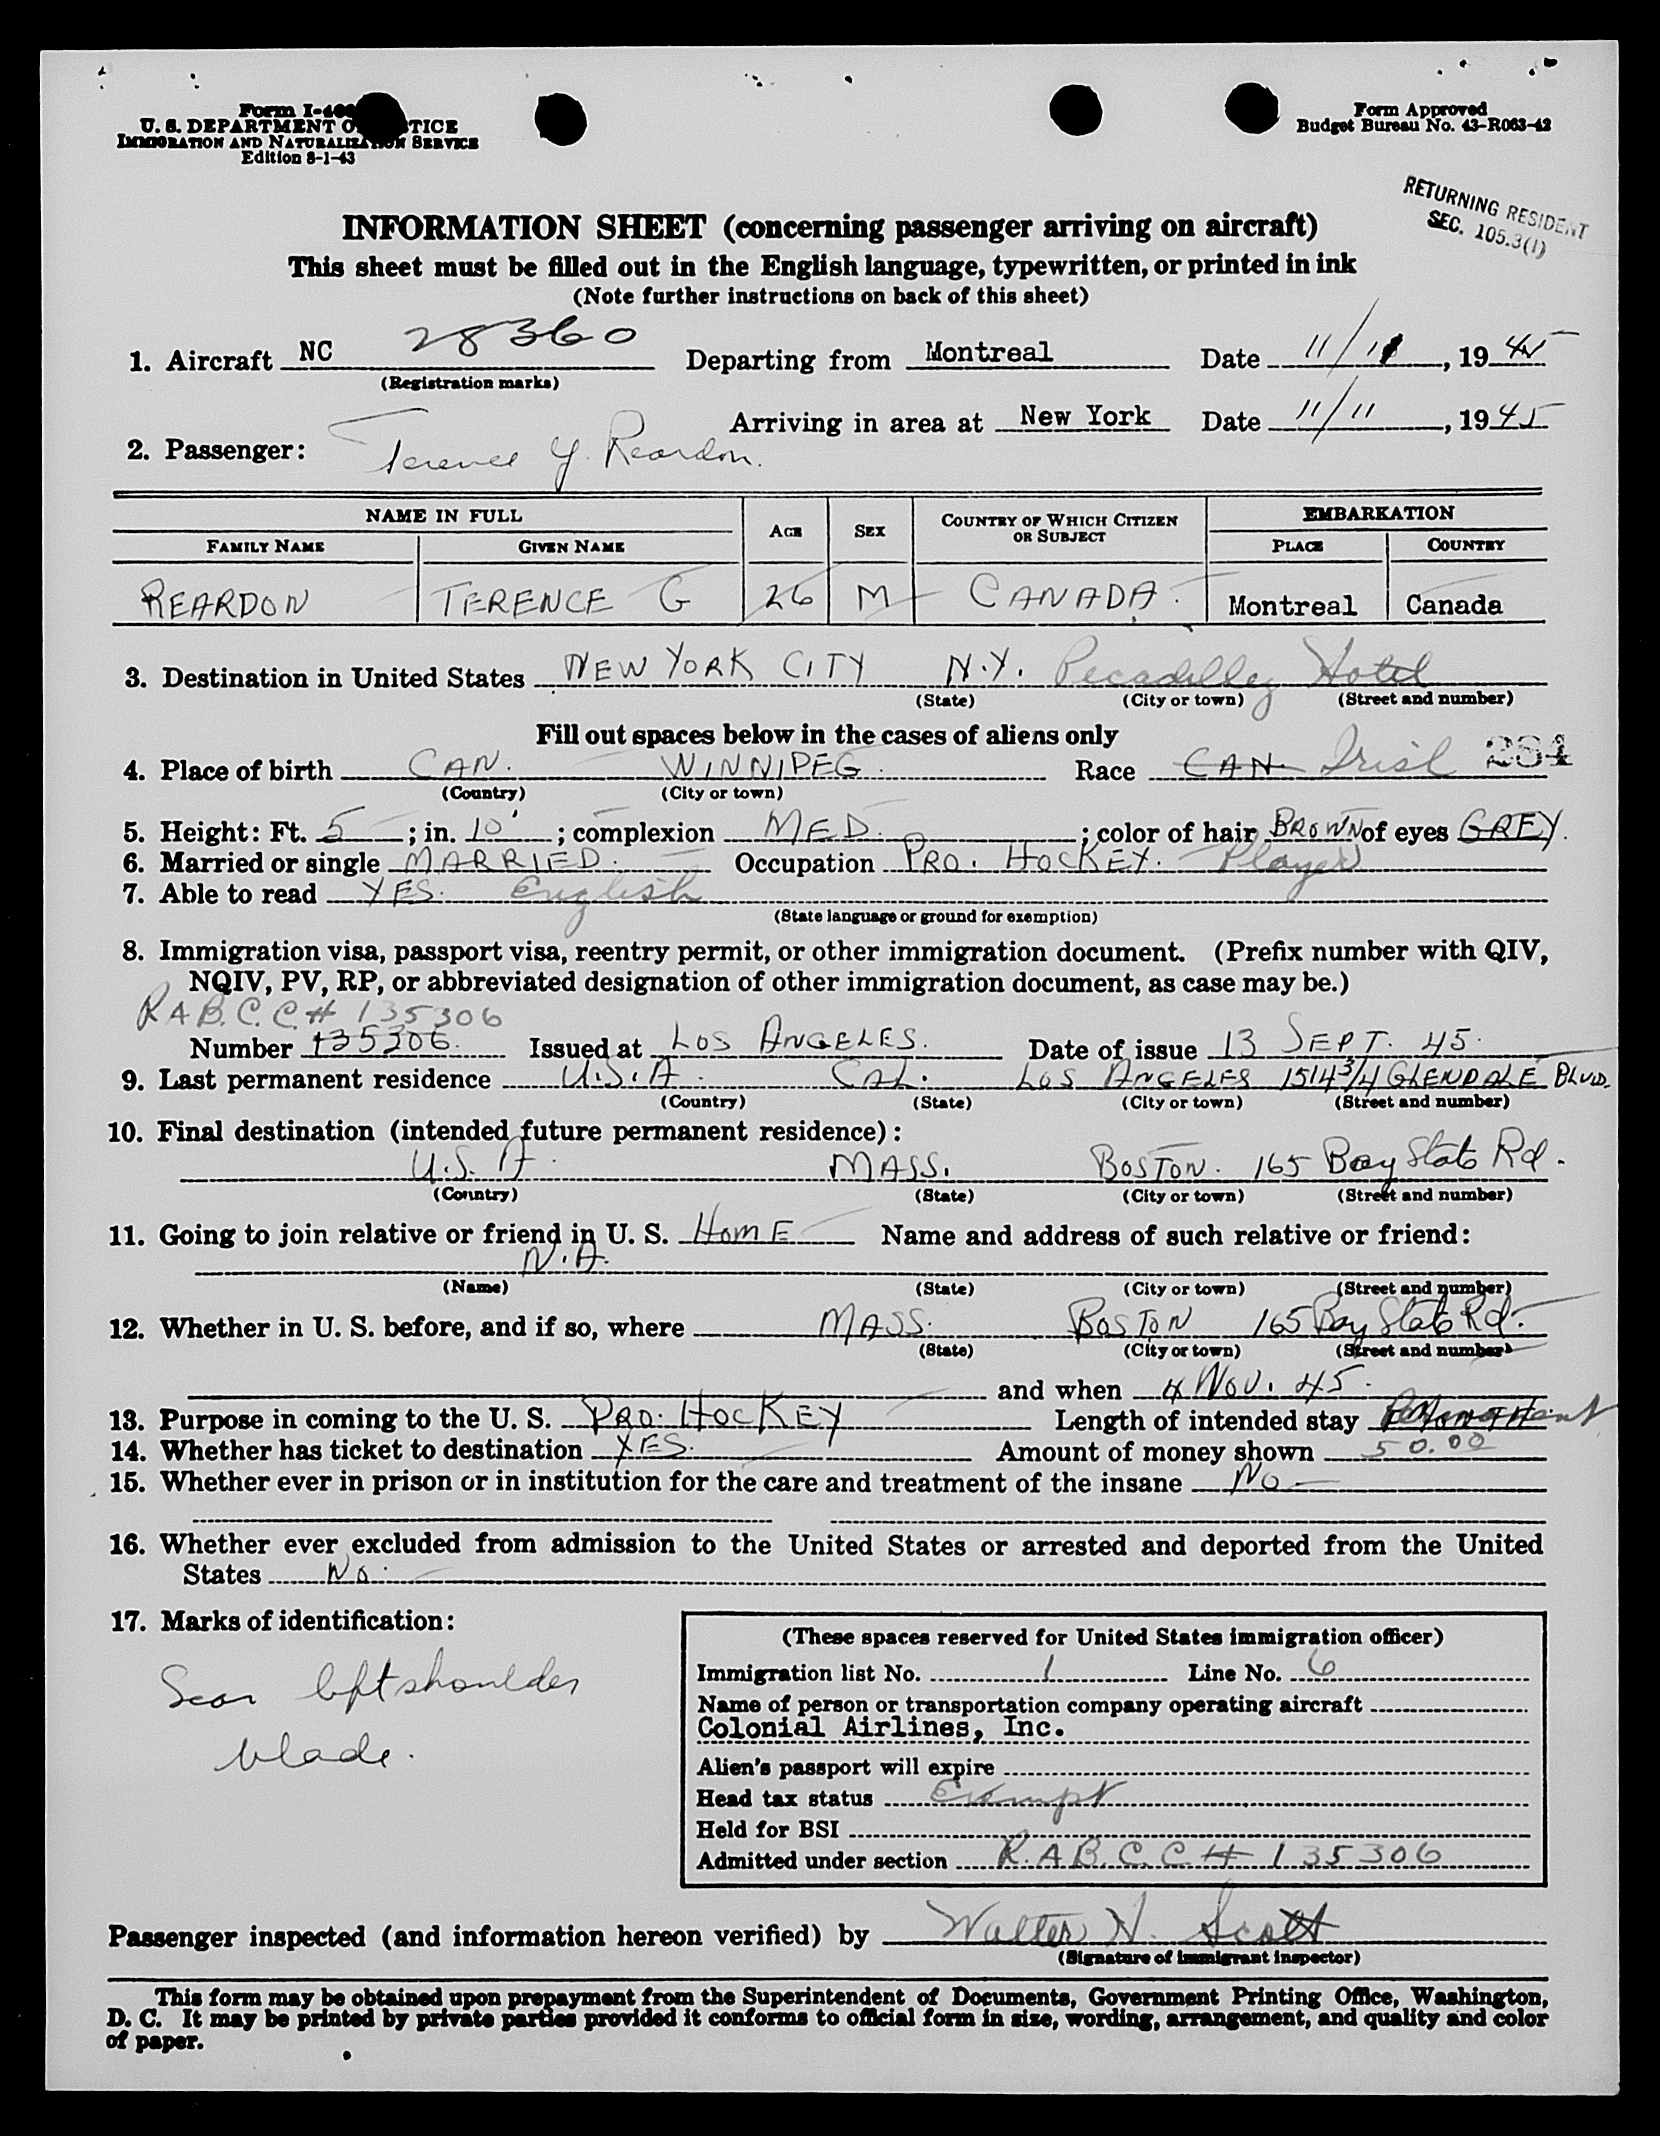 Form I-466
U. S. DEPARTMENT OF JUSTICE
IMMIGRATION AND NATURALIZATION SERVICE
Edition 8-1-43
Form Approved
Budget Bureau No. 43-R063-42
RETURNING RESIDENT
SEC. 105.3(1)
INFORMATION SHEET (concerning passenger arriving on aircraft)
This sheet must be filled out in the English language, typewritten, or printed in ink
(Note further instructions on back of this sheet)
1. Aircraft NC 28360 Departing from Montreal Date 11/11, 1945
(Registration marks)
Arriving in area at New York Date 11/11, 1945
2. Passenger: Terence G. Reardon.
NAME IN FULL AGE SEX COUNTRY OF WHICH CITIZEN OR SUBJECT EMBARKATION
FAMILY NAME GIVEN NAME PLACE COUNTRY
REARDON TERENCE G 26 M CANADA. Montreal Canada
3. Destination in United States NEW YORK CITY N.Y. Pecadilley Hotel
(State) (City or town) (Street and number)
Fill out spaces below in the cases of aliens only
4. Place of birth CAN. WINNIPEG. Race CAN. Irish 284
(Country) (City or town)
5. Height: Ft. 5; in. 10'; complexion MED.; color of hair BROWN of eyes GREY.
6. Married or single MARRIED. Occupation PRO. HOCKEY. Player
7. Able to read YES. English
(State language or ground for exemption)
8. Immigration visa, passport visa, reentry permit, or other immigration document. (Prefix number with QIV,
NQIV, PV, RP, or abbreviated designation of other immigration document, as case may be.)
R A B.C.C.# 135306
Number 135306. Issued at LOS ANGELES. Date of issue 13 SEPT. 45.
9. Last permanent residence U.S.A. CAL. LOS ANGELES 1514 3/4 GLENDALE BLVD.
(Country) (State) (City or town) (Street and number)
10. Final destination (intended future permanent residence):
U.S.A. MASS. BOSTON. 165 Bay State Rd.
(Country) (State) (City or town) (Street and number)
11. Going to join relative or friend in U. S. HOME Name and address of such relative or friend:
N.A.
(Name) (State) (City or town) (Street and number)
12. Whether in U. S. before, and if so, where MASS. BOSTON 165 Bay State Rd.
(State) (City or town) (Street and number)
and when 4 NOV. 45.
13. Purpose in coming to the U. S. PRO. HOCKEY Length of intended stay Permanent
14. Whether has ticket to destination YES. Amount of money shown 50.00
15. Whether ever in prison or in institution for the care and treatment of the insane NO
16. Whether ever excluded from admission to the United States or arrested and deported from the United
States NO.
17. Marks of identification:
Scar left shoulder
blade.
(These spaces reserved for United States immigration officer)
Immigration list No. 1 Line No. 6
Name of person or transportation company operating aircraft
Colonial Airlines, Inc.
Alien's passport will expire
Head tax status Exempt
Held for BSI
Admitted under section R.A.B.C.C.# 135306
Passenger inspected (and information hereon verified) by Walter N. Scott
(Signature of immigrant inspector)
This form may be obtained upon prepayment from the Superintendent of Documents, Government Printing Office, Washington,
D. C. It may be printed by private parties provided it conforms to official form in size, wording, arrangement, and quality and color
of paper.